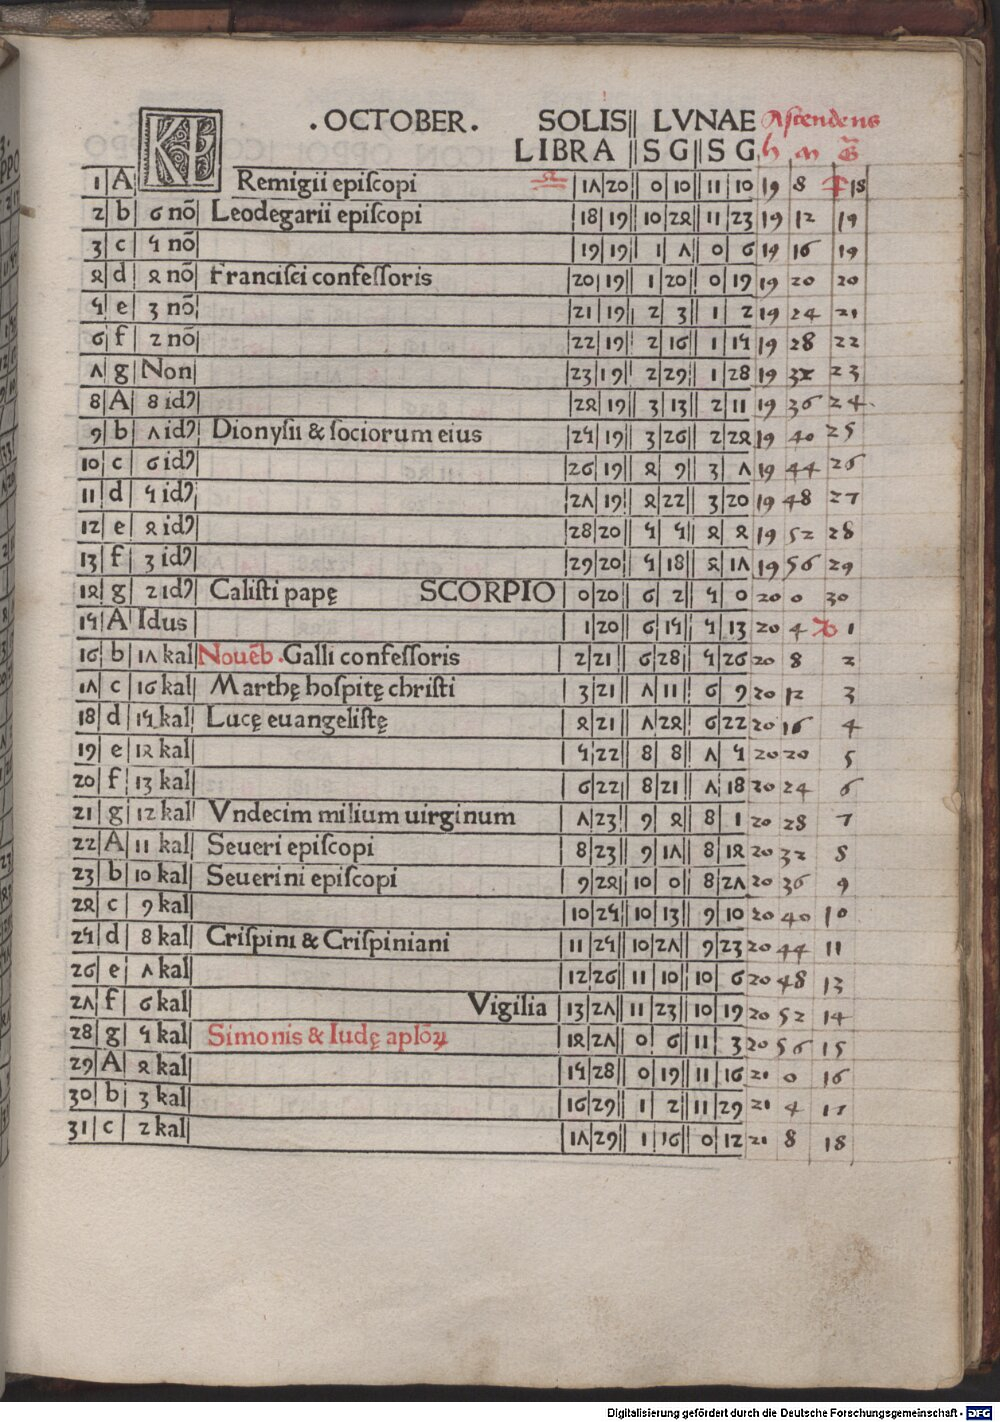 .OCTOBER. SOLIS LVNAE Ascendens
KL LIBRA S G S G h m G
1 A Remigii epiſcopi ♎ 17 20 0 10 11 10 19 8 18
2 b 6 nō Leodegarii epiſcopi 18 19 10 24 11 23 19 12 19
3 c 5 nō 19 19 1 7 0 6 19 16 19
4 d 4 nō Franciſci confeſſoris 20 19 1 20 0 19 19 20 20
5 e 3 nō 21 19 2 3 1 2 19 24 21
6 f 2 nō 22 19 2 16 1 15 19 28 22
7 g Non 23 19 2 29 1 28 19 32 23
8 A 8 idꝰ 24 19 3 13 2 11 19 36 24
9 b 7 idꝰ Dionyſii & ſociorum eius 25 19 3 26 2 24 19 40 25
10 c 6 idꝰ 26 19 4 9 3 7 19 44 26
11 d 5 idꝰ 27 19 4 22 3 20 19 48 27
12 e 4 idꝰ 28 20 5 5 4 4 19 52 28
13 f 3 idꝰ 29 20 5 18 4 17 19 56 29
14 g 2 idꝰ Caliſti papę SCORPIO 0 20 6 2 5 0 20 0 30
15 A Idus 1 20 6 15 5 13 20 4 1
16 b 17 kal Nouēb. Galli confeſſoris 2 21 6 28 5 26 20 8 2
17 c 16 kal Marthę hoſpitę chriſti 3 21 7 11 6 9 20 12 3
18 d 15 kal Lucę euangeliſtę 4 21 7 24 6 22 20 16 4
19 e 14 kal 5 22 8 8 7 5 20 20 5
20 f 13 kal 6 22 8 21 7 18 20 24 6
21 g 12 kal Vndecim milium uirginum 7 23 9 4 8 1 20 28 7
22 A 11 kal Seueri epiſcopi 8 23 9 17 8 14 20 32 8
23 b 10 kal Seuerini epiſcopi 9 24 10 0 8 27 20 36 9
24 c 9 kal 10 25 10 13 9 10 20 40 10
25 d 8 kal Criſpini & Criſpiniani 11 25 10 27 9 23 20 44 11
26 e 7 kal 12 26 11 10 10 6 20 48 13
27 f 6 kal Vigilia 13 27 11 23 10 19 20 52 14
28 g 5 kal Simonis & Iudę aplōꝝ 14 27 0 6 11 3 20 56 15
29 A 4 kal 15 28 0 19 11 16 21 0 16
30 b 3 kal 16 29 1 2 11 29 21 4 17
31 c 2 kal 17 29 1 16 0 12 21 8 18
Digitalisierung gefördert durch die Deutsche Forschungsgemeinschaft - DFG